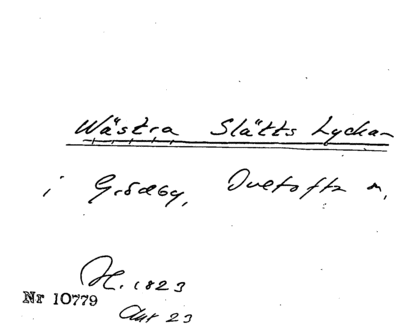 Wästra Slätts Lyckan
i Grödby, Duetofta n.
H. 1823
Nr 10779
Akt 23